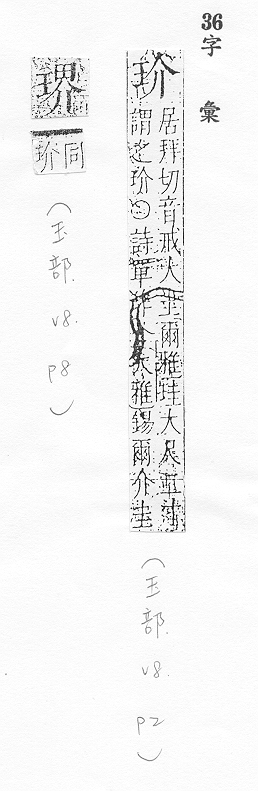 36字彙
玠
居拜切音戒大圭爾雅珪大尺二寸
謂之玠〇詩單作介大雅錫爾介圭
(玉部. v8. p2)
琾
同玠
(玉部. v8. p8)